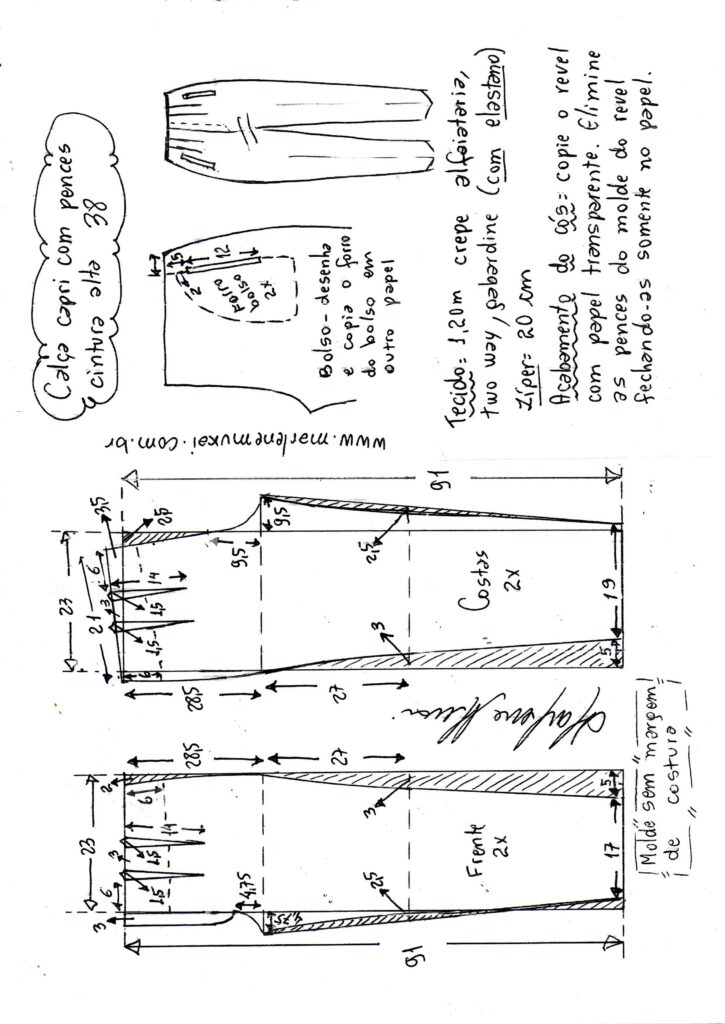 Calça capri com pences
cintura alta 38
1,5
12
2
Forro
bolso
2x
Bolso - desenha
e copia o forro
do bolso em
outro papel
Tecido = 1,20m crepe alfaiataria,
two way, gabardine (com elastano)
Zíper = 20 cm
Acabamento do cós = copie o revel
com papel transparente. Elimine
as pences do molde do revel
fechando-as somente no papel.
www.marlenemukai.com.br
91
23
21
3,5
2,5
6
3
14
1,5
1,5
6
9,5
9,5
28,5
27
2,5
3
Costas
2x
19
5
23
2
6
14
3
1,5
1,5
6
3
4,75
4,75
28,5
27
3
2,5
Frente
2x
17
5
91
Molde sem margem
de costura